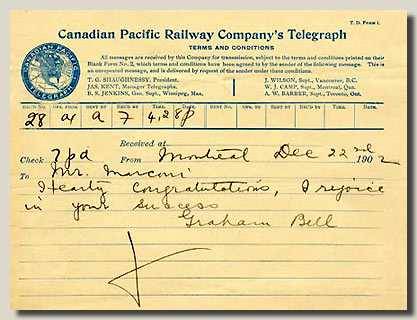 T. D. Form 1.
Canadian Pacific Railway Company's Telegraph
TERMS AND CONDITIONS
All messages are received by this Company for transmission, subject to the terms and conditions printed on their
Blank Form No. 2, which terms and conditions have been agreed to by the sender of the following message. This is
an unrepeated message, and is delivered by request of the sender under these conditions.
T. G. SHAUGHNESSY, President.
JAS. KENT, Manager Telegraphs.
B. S. JENKINS, Gen. Supt., Winnipeg, Man.
J. WILSON, Supt., Vancouver, B.C.
W. J. CAMP, Supt., Montreal, Que.
A. W. BARBER, Supt., Toronto, Ont.
CANADIAN PACIFIC
TELEGRAPH
28 a 7 4.28p
Received at
Check 7 pd From Montreal Dec 22nd 1902
To Mr. Marconi
Hearty Congratutations, I rejoice
in your success
Graham Bell